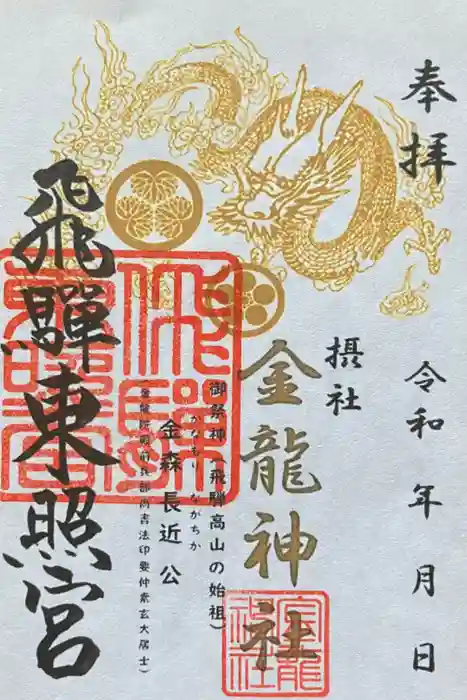 奉拝
令和 年 月 日
摂社
金龍神社
御祭神(飛騨高山の始祖)
かなもり ながちか
金森長近公
(金龍院殿前兵部尚書法印要仲素玄大居士)
飛騨東照宮